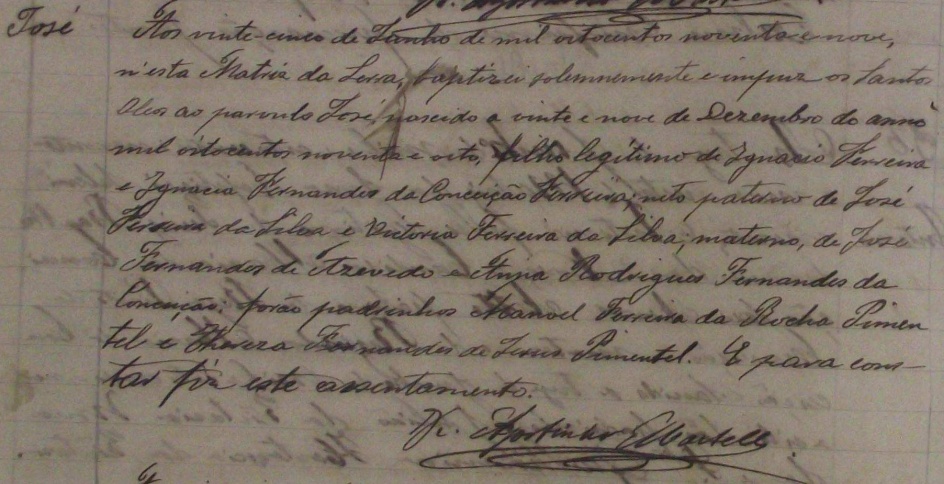 José
Aos vinte-cinco de Junho de mil oitocentos noventa e nove,
n'esta Matriz da Serra, baptizei solemnemente e impuz os Santos
Oleos ao parvulo José, nascido a vinte e nove de Dezembro do anno
mil oitocentos noventa e oito, filho legitimo de Ignacio Ferreira
e Ignacia Fernandes da Conceição Ferreira; neto paterno de José
Ferreira da Silva e Victoria Ferreira da Silva; materno, de José
Fernandes de Azevedo e Anna Rodrigues Fernandes da
Conceição; forão padrinhos Manoel Ferreira da Rocha Pimen
tel e Thereza Fernandes de Jesus Pimentel. E para cons-
tar fiz este assentamento.
P. Agostinho